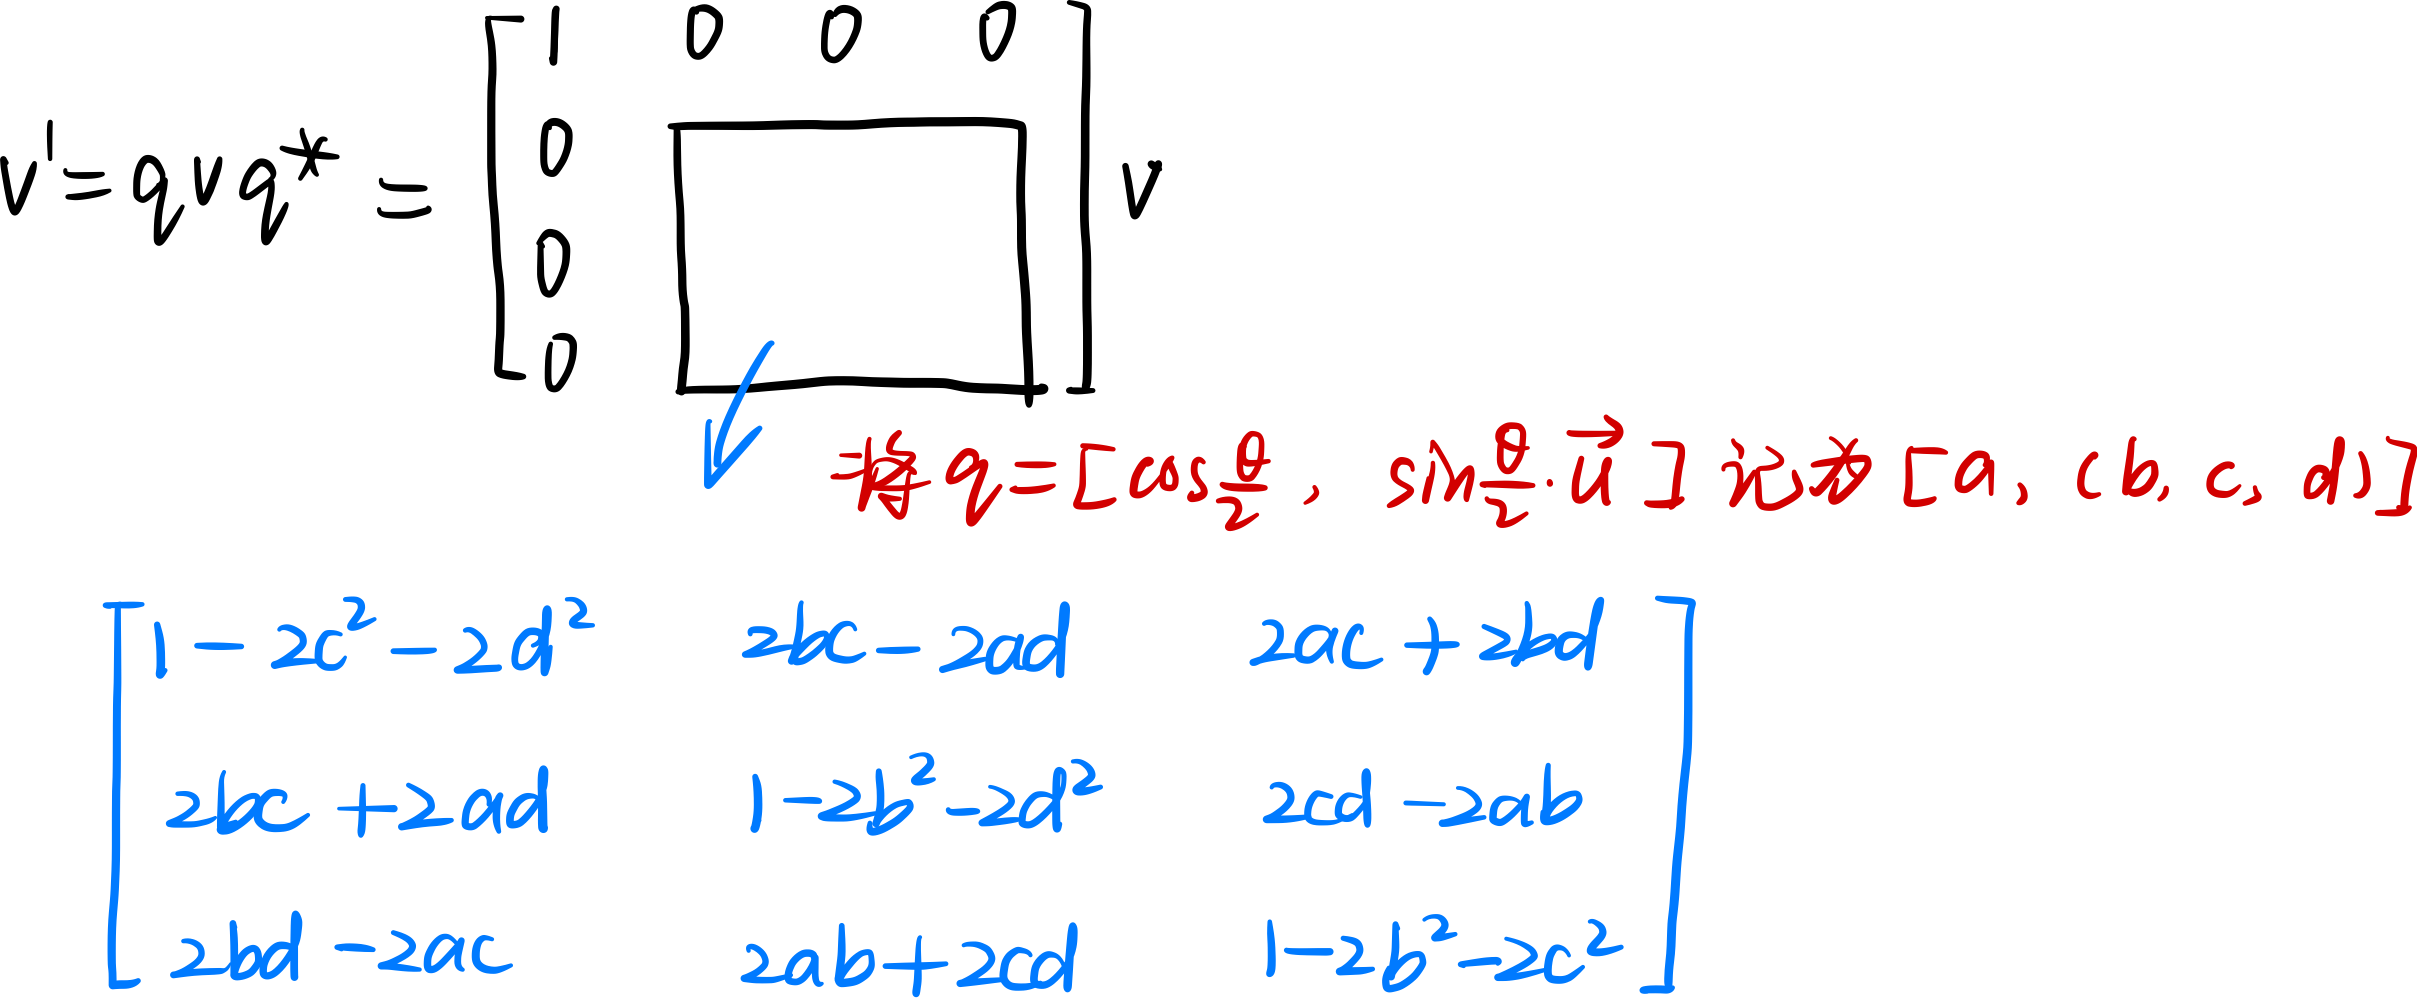 1 0 0 0
0
v' = q v q* = v
0
0
将 q = [cos θ/2, sin θ/2 · u⃗] 记为 [a, (b, c, d)]
1 - 2c² - 2d² 2bc - 2ad 2ac + 2bd
2bc + 2ad 1 - 2b² - 2d² 2cd - 2ab
2bd - 2ac 2ab + 2cd 1 - 2b² - 2c²